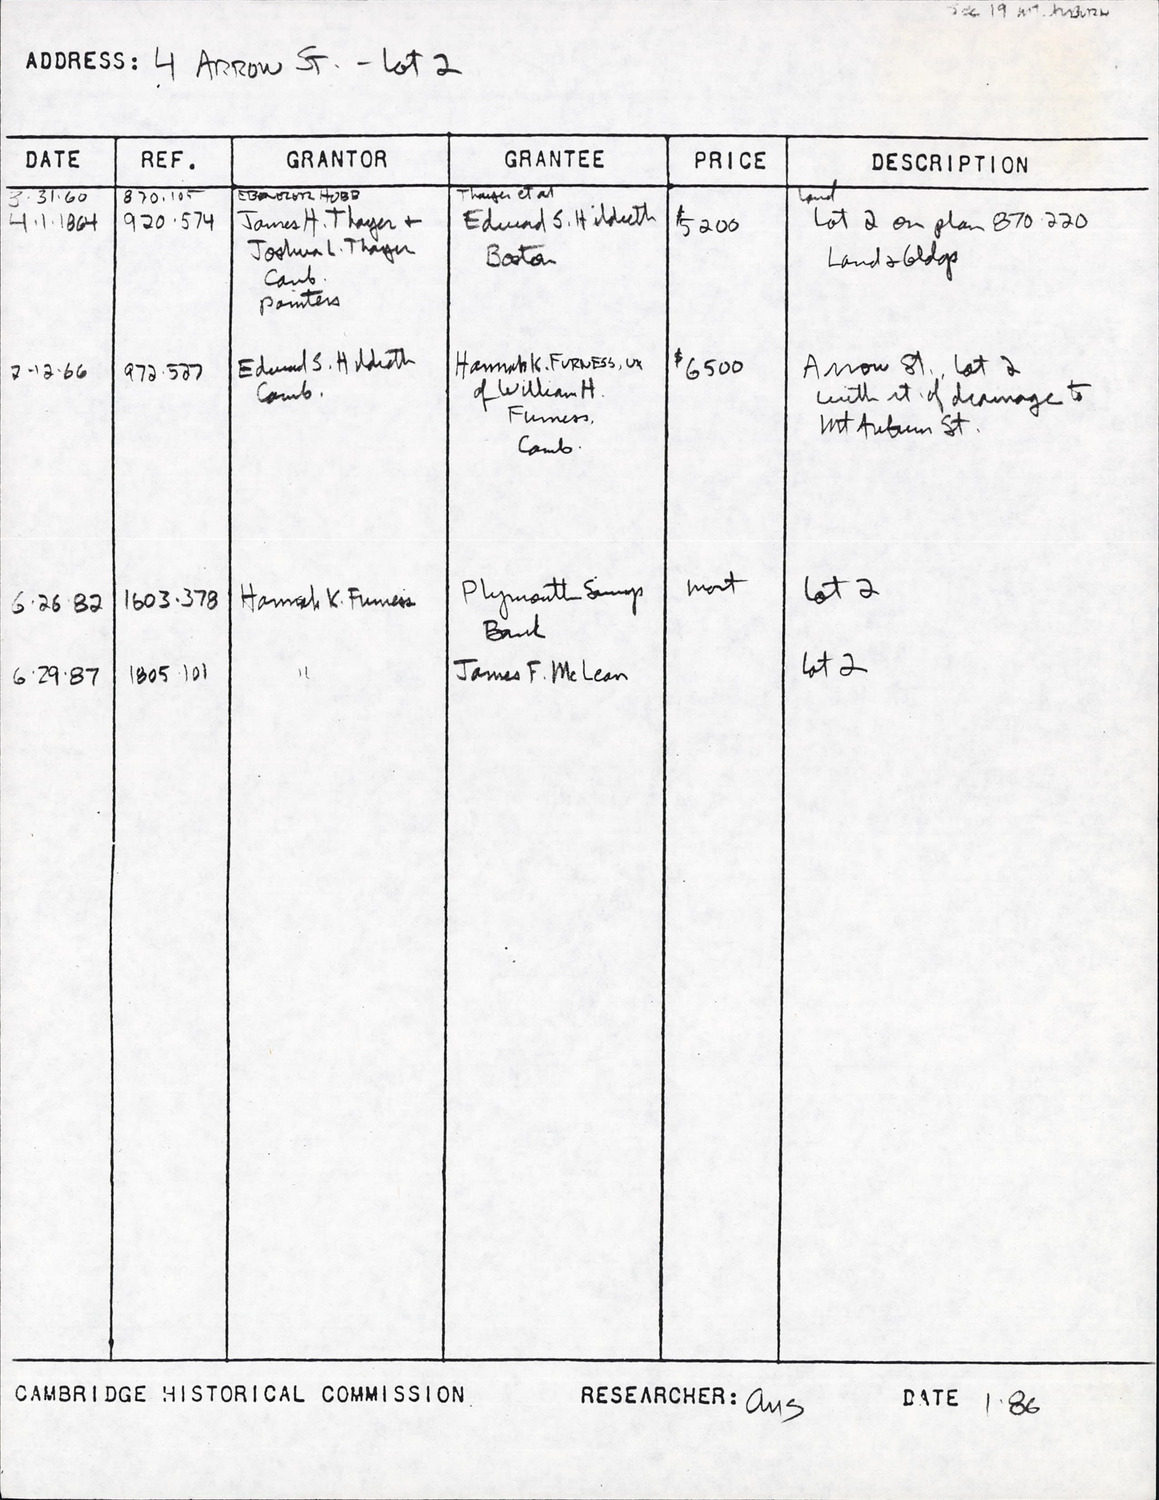 19 Mt. Auburn
ADDRESS: 4 ARROW ST. - Lot 2
DATE REF. GRANTOR GRANTEE PRICE DESCRIPTION
3.31.60 870.105 EBENEZER HOBB Thayer et al Land
4.1.1864 920.574 James H. Thayer + Edward S. Hildreth $5200 Lot 2 on plan 870.220
Joshua L. Thayer Boston Land & bldgs
Camb.
painters
2.12.66 972.527 Edward S. Hildreth Hannah K. FURNESS, ux $6500 Arrow St., Lot 2
Camb. of William H. with rt. of drainage to
Furness, Mt Auburn St.
Camb.
6.26.82 1603.378 Hannah K. Furness Plymouth Savings mort Lot 2
Bank
6.29.87 1805.101 " James F. McLean Lot 2
CAMBRIDGE HISTORICAL COMMISSION RESEARCHER: DATE 1.86